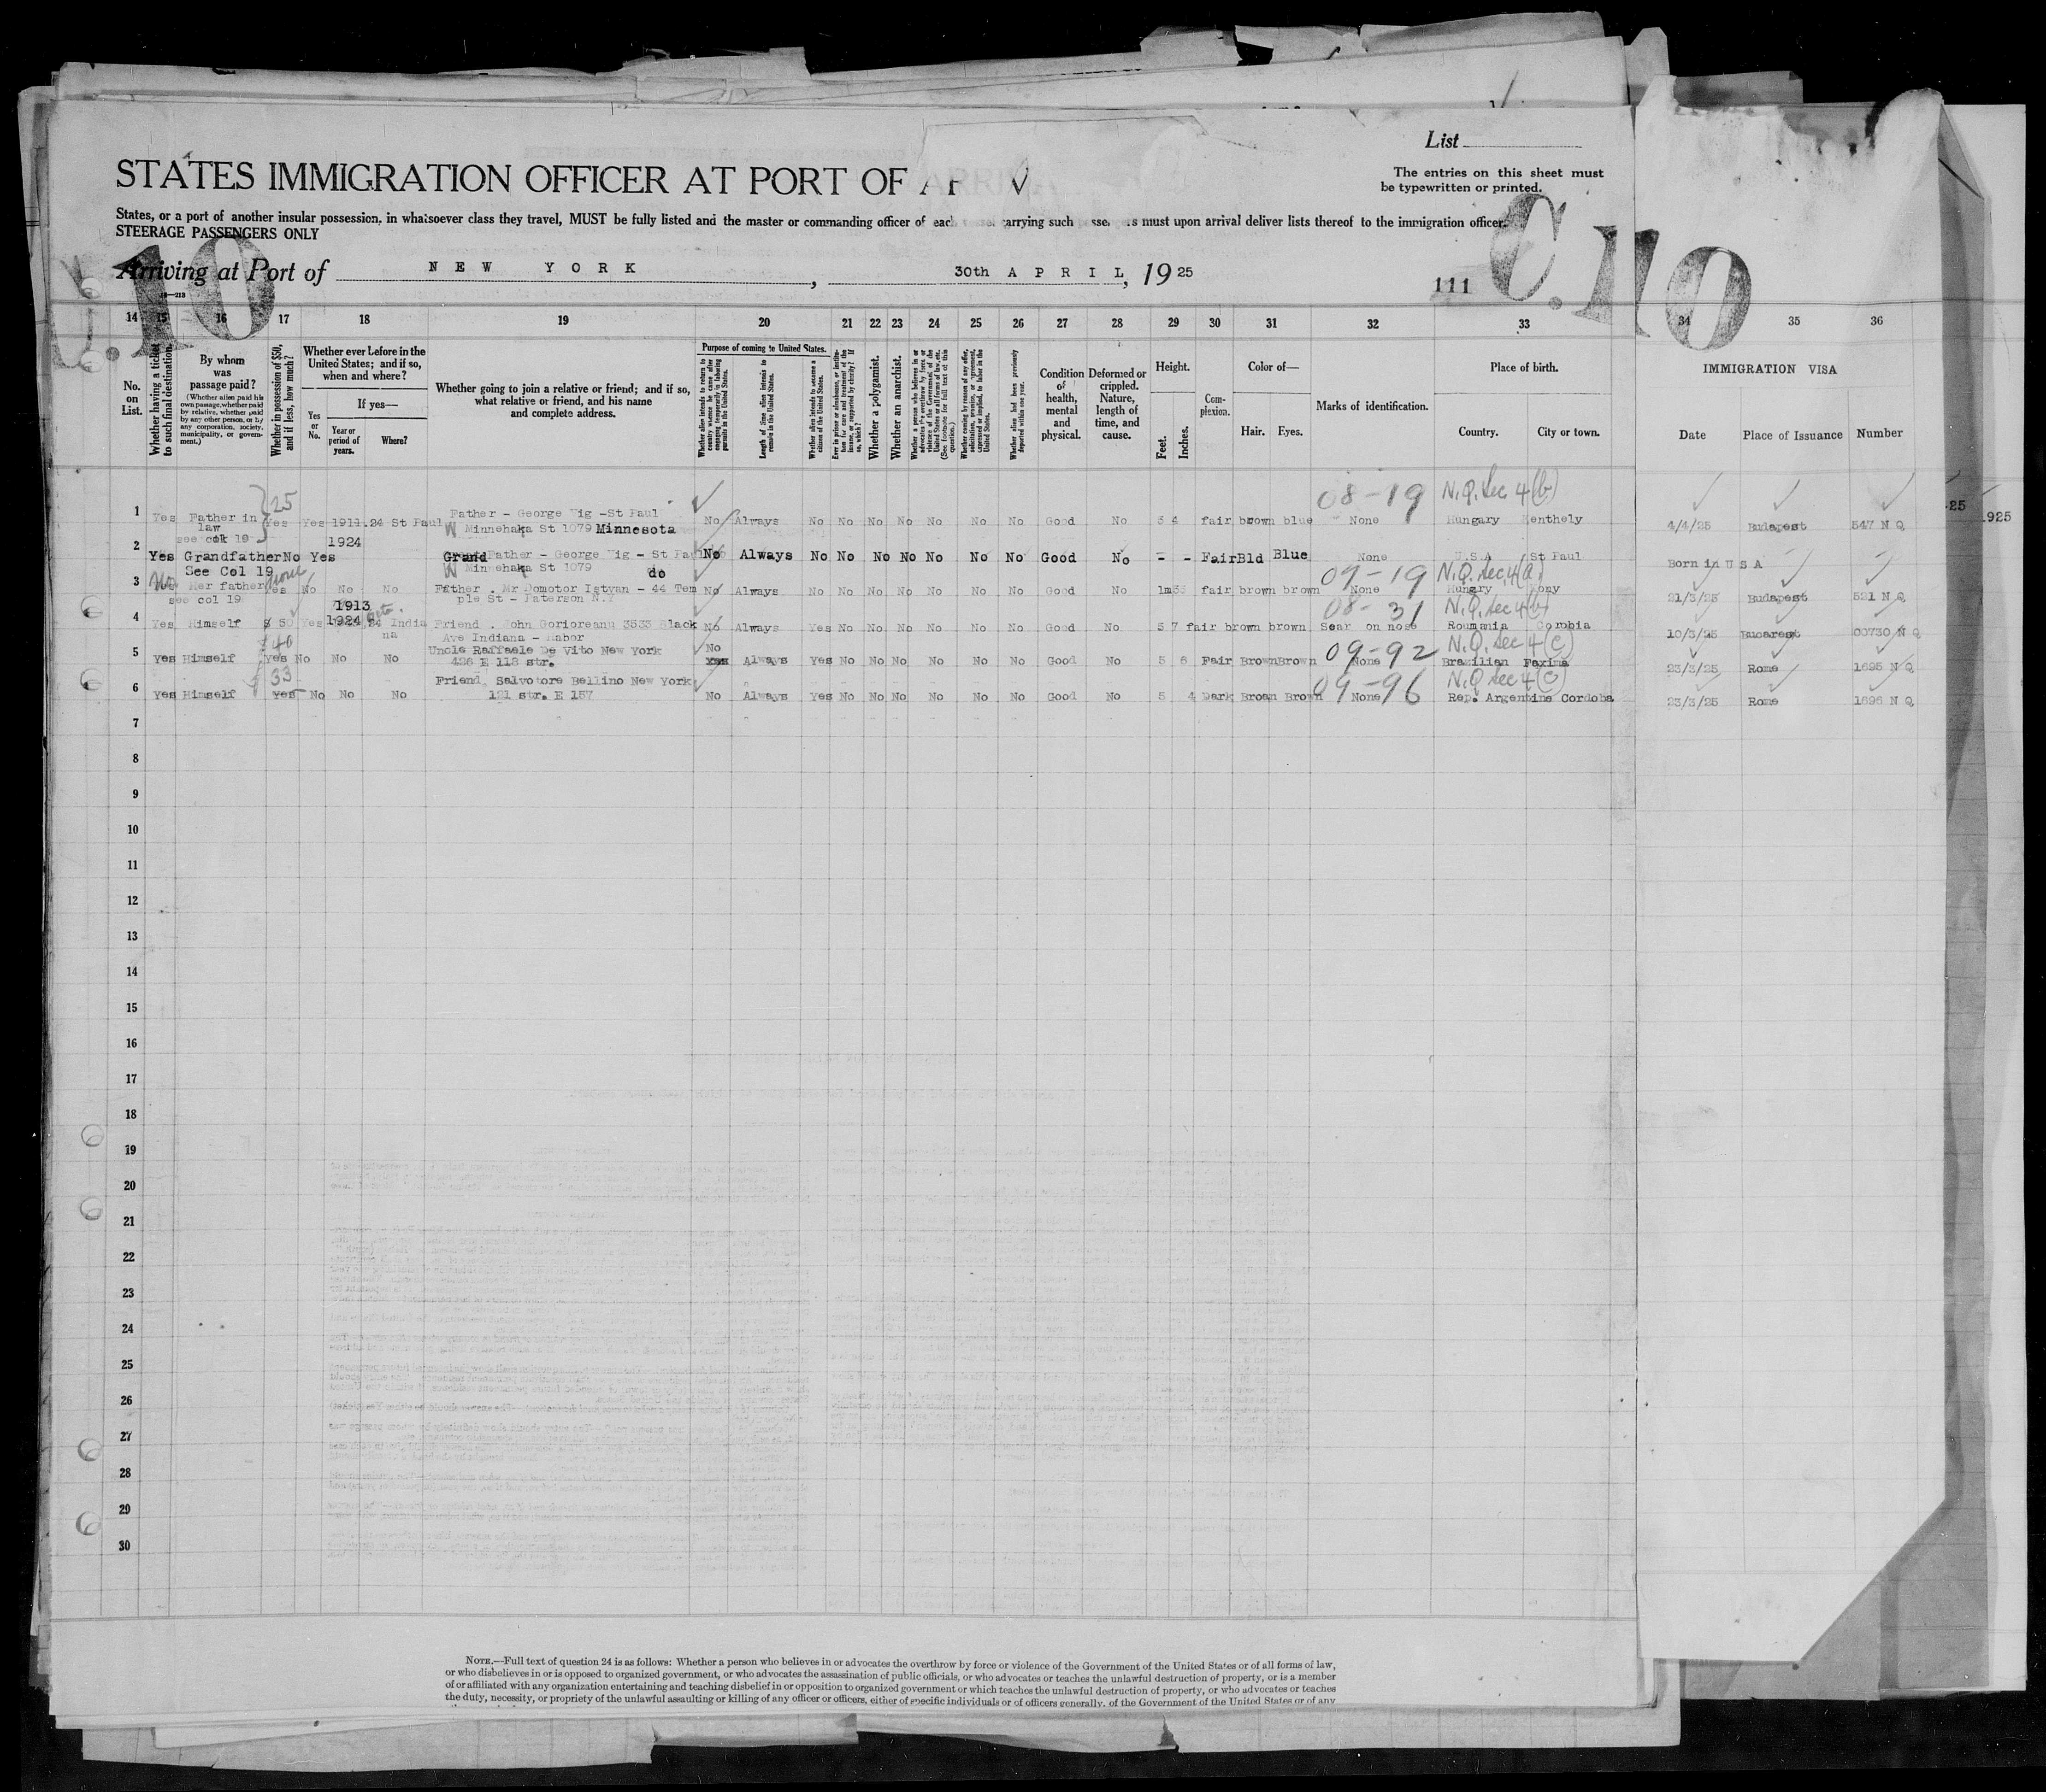 List
STATES IMMIGRATION OFFICER AT PORT OF ARRIVA
The entries on this sheet must
be typewritten or printed.
States, or a port of another insular possession, in whatsoever class they travel, MUST be fully listed and the master or commanding officer of each vessel carrying such passengers must upon arrival deliver lists thereof to the immigration officer.
STEERAGE PASSENGERS ONLY
C. 10
C. 110
Arriving at Port of NEW YORK, 30th APRIL, 1925
111
14 15 16 17 18 19 20 21 22 23 24 25 26 27 28 29 30 31 32 33 34 35 36
No. on List.
Whether having a ticket to such final destination.
By whom was passage paid?
(Whether alien paid his own passage, whether paid by relative, whether paid by any other person, or by any corporation, society, municipality, or government.)
Whether in possession of $50, and if less, how much?
Whether ever before in the United States; and if so, when and where?
Yes or No.
If yes—
Year or period of years.
Where?
Whether going to join a relative or friend; and if so, what relative or friend, and his name and complete address.
Purpose of coming to United States.
Length of time alien intends to remain in the United States.
Whether alien intends to become a citizen of the United States.
Whether a polygamist.
Whether an anarchist.
Condition of health, mental and physical.
Deformed or crippled. Nature, length of time, and cause.
Height.
Feet.
Inches.
Complexion.
Color of—
Hair. Eyes.
Marks of identification.
Place of birth.
Country. City or town.
IMMIGRATION VISA
Date Place of Issuance Number
25
08-19 N.Q. Sec 4(b)
Father - George Vig - St Paul
1 Yes Father in law Yes Yes 1911.24 St Paul W Minnehaka St 1079 Minnesota No Always No No No No No No No Good No 5 4 fair brown blue None Hungary Kenthely 4/4/25 Budapest 547 N Q
see col 19 1924
2 Yes Grandfather No Yes Grand Father - George Vig - St Paul No Always No No No No No No No Good No - - Fair Bld Blue None U.S.A St Paul Born in U S A
See Col 19 W Minnehaka St 1079 do
none 09-19 N.Q. Sec 4(a)
3 No Her father Yes No No No Father . Mr Domotor Istvan - 44 Tem No Always No No No No No No No Good No 1m55 fair brown brown None Hungry ony 21/3/25 Budapest 521 N Q
see col 19 ple St - Paterson N.Y
1913 08-31 N.Q. Sec 4(b)
4 Yes Himself $ 50 Yes 1924 India na Friend . John Gorioreanu 3533 Black No Always Yes No No No No No No Good No 5 7 fair brown brown Scar on nose Roumania Cornbia 10/3/25 Bucarest 00730 N Q
Ave Indiana - Habor
$40 09-92 N.Q. Sec 4(c)
Uncle Raffaele De Vito New York No
5 Yes Himself Yes No No No 426 E 112 str. Yes Always Yes No No No No No No Good No 5 6 Fair Brown Brown None Brazilian Faxina 23/3/25 Rome 1695 N Q
$33 09-96 N.Q Sec 4(c)
Friend Salvotore Bellino New York
6 Yes Himself Yes No No No 121 str. E 157 No Always Yes No No No No No No Good No 5 4 Dark Brown Brown None Rep. Argentine Cordoba 23/3/25 Rome 1696 N Q
25
1925
7
8
9
10
11
12
13
14
15
16
17
18
19
20
21
22
23
24
25
26
27
28
29
30
NOTE.—Full text of question 24 is as follows: Whether a person who believes in or advocates the overthrow by force or violence of the Government of the United States or of all forms of law,
or who disbelieves in or is opposed to organized government, or who advocates the assassination of public officials, or who advocates or teaches the unlawful destruction of property, or is a member
of or affiliated with any organization entertaining and teaching disbelief in or opposition to organized government or which teaches the unlawful destruction of property, or who advocates or teaches
the duty, necessity, or propriety of the unlawful assaulting or killing of any officer or officers, either of specific individuals or of officers generally, of the Government of the United States or of any